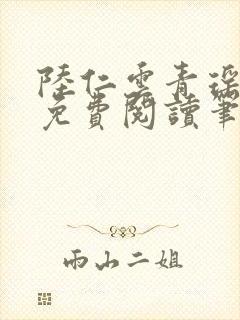 陸仁雲青瑤
免費閱讀筆
雨山二姐